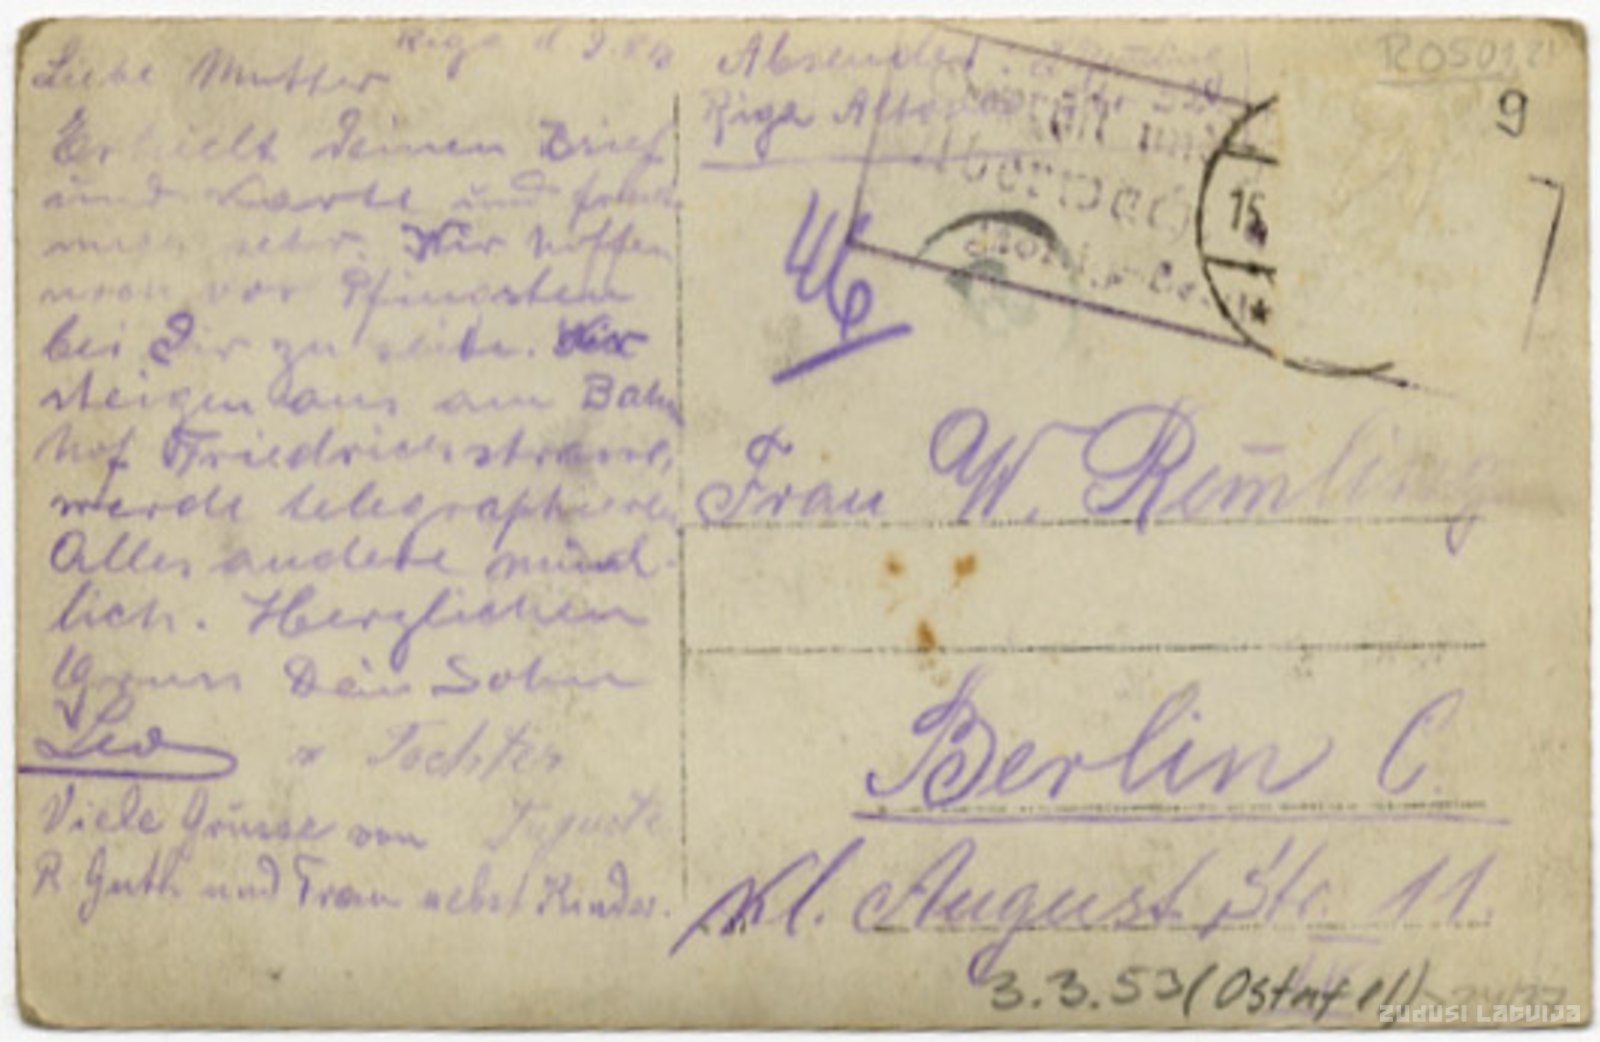 Riga d.
Liebe Mutter
Erhielt deinen Brief
und Karte und freue
mich sehr. Wir hoffen
vor Pfingsten
bei Dir zu sein. Wir
steigen aus am Bahn
hof Friedrichstrasse,
werde telegraphieren
Alles andere münd-
lich. Herzlichen
Gruss Dein Sohn
Leo u Tochter
Viele Grüsse von Auguste
R Guth und Frau nebst Kinder.
Absender:
Riga
46
9
15
Frau W. Remling
Berlin C.
Kl. August Str. 11.
3.3.53 (Ostnfel)
R05012
ZUDUSI LATVIJA